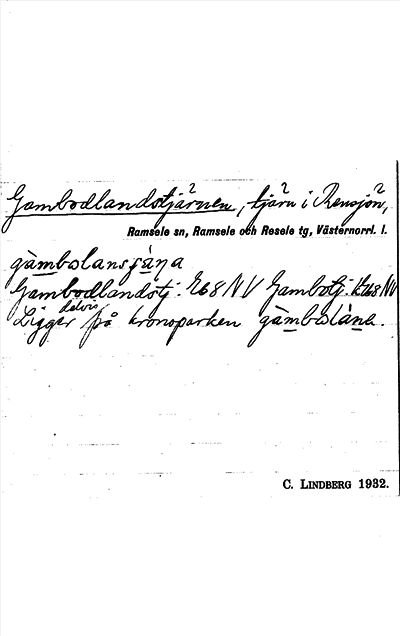 Gambodlandstjärnen, tjärn i Rensjön,
Ramsele sn, Ramsele och Resele tg, Västernorrl. l.
gàmbolansʃä̀ṇa
Gambodlandstj. E68NV Gambotj. K48NV
delvis
Ligger på kronoparken gàmbolàna.
C. LINDBERG 1932.